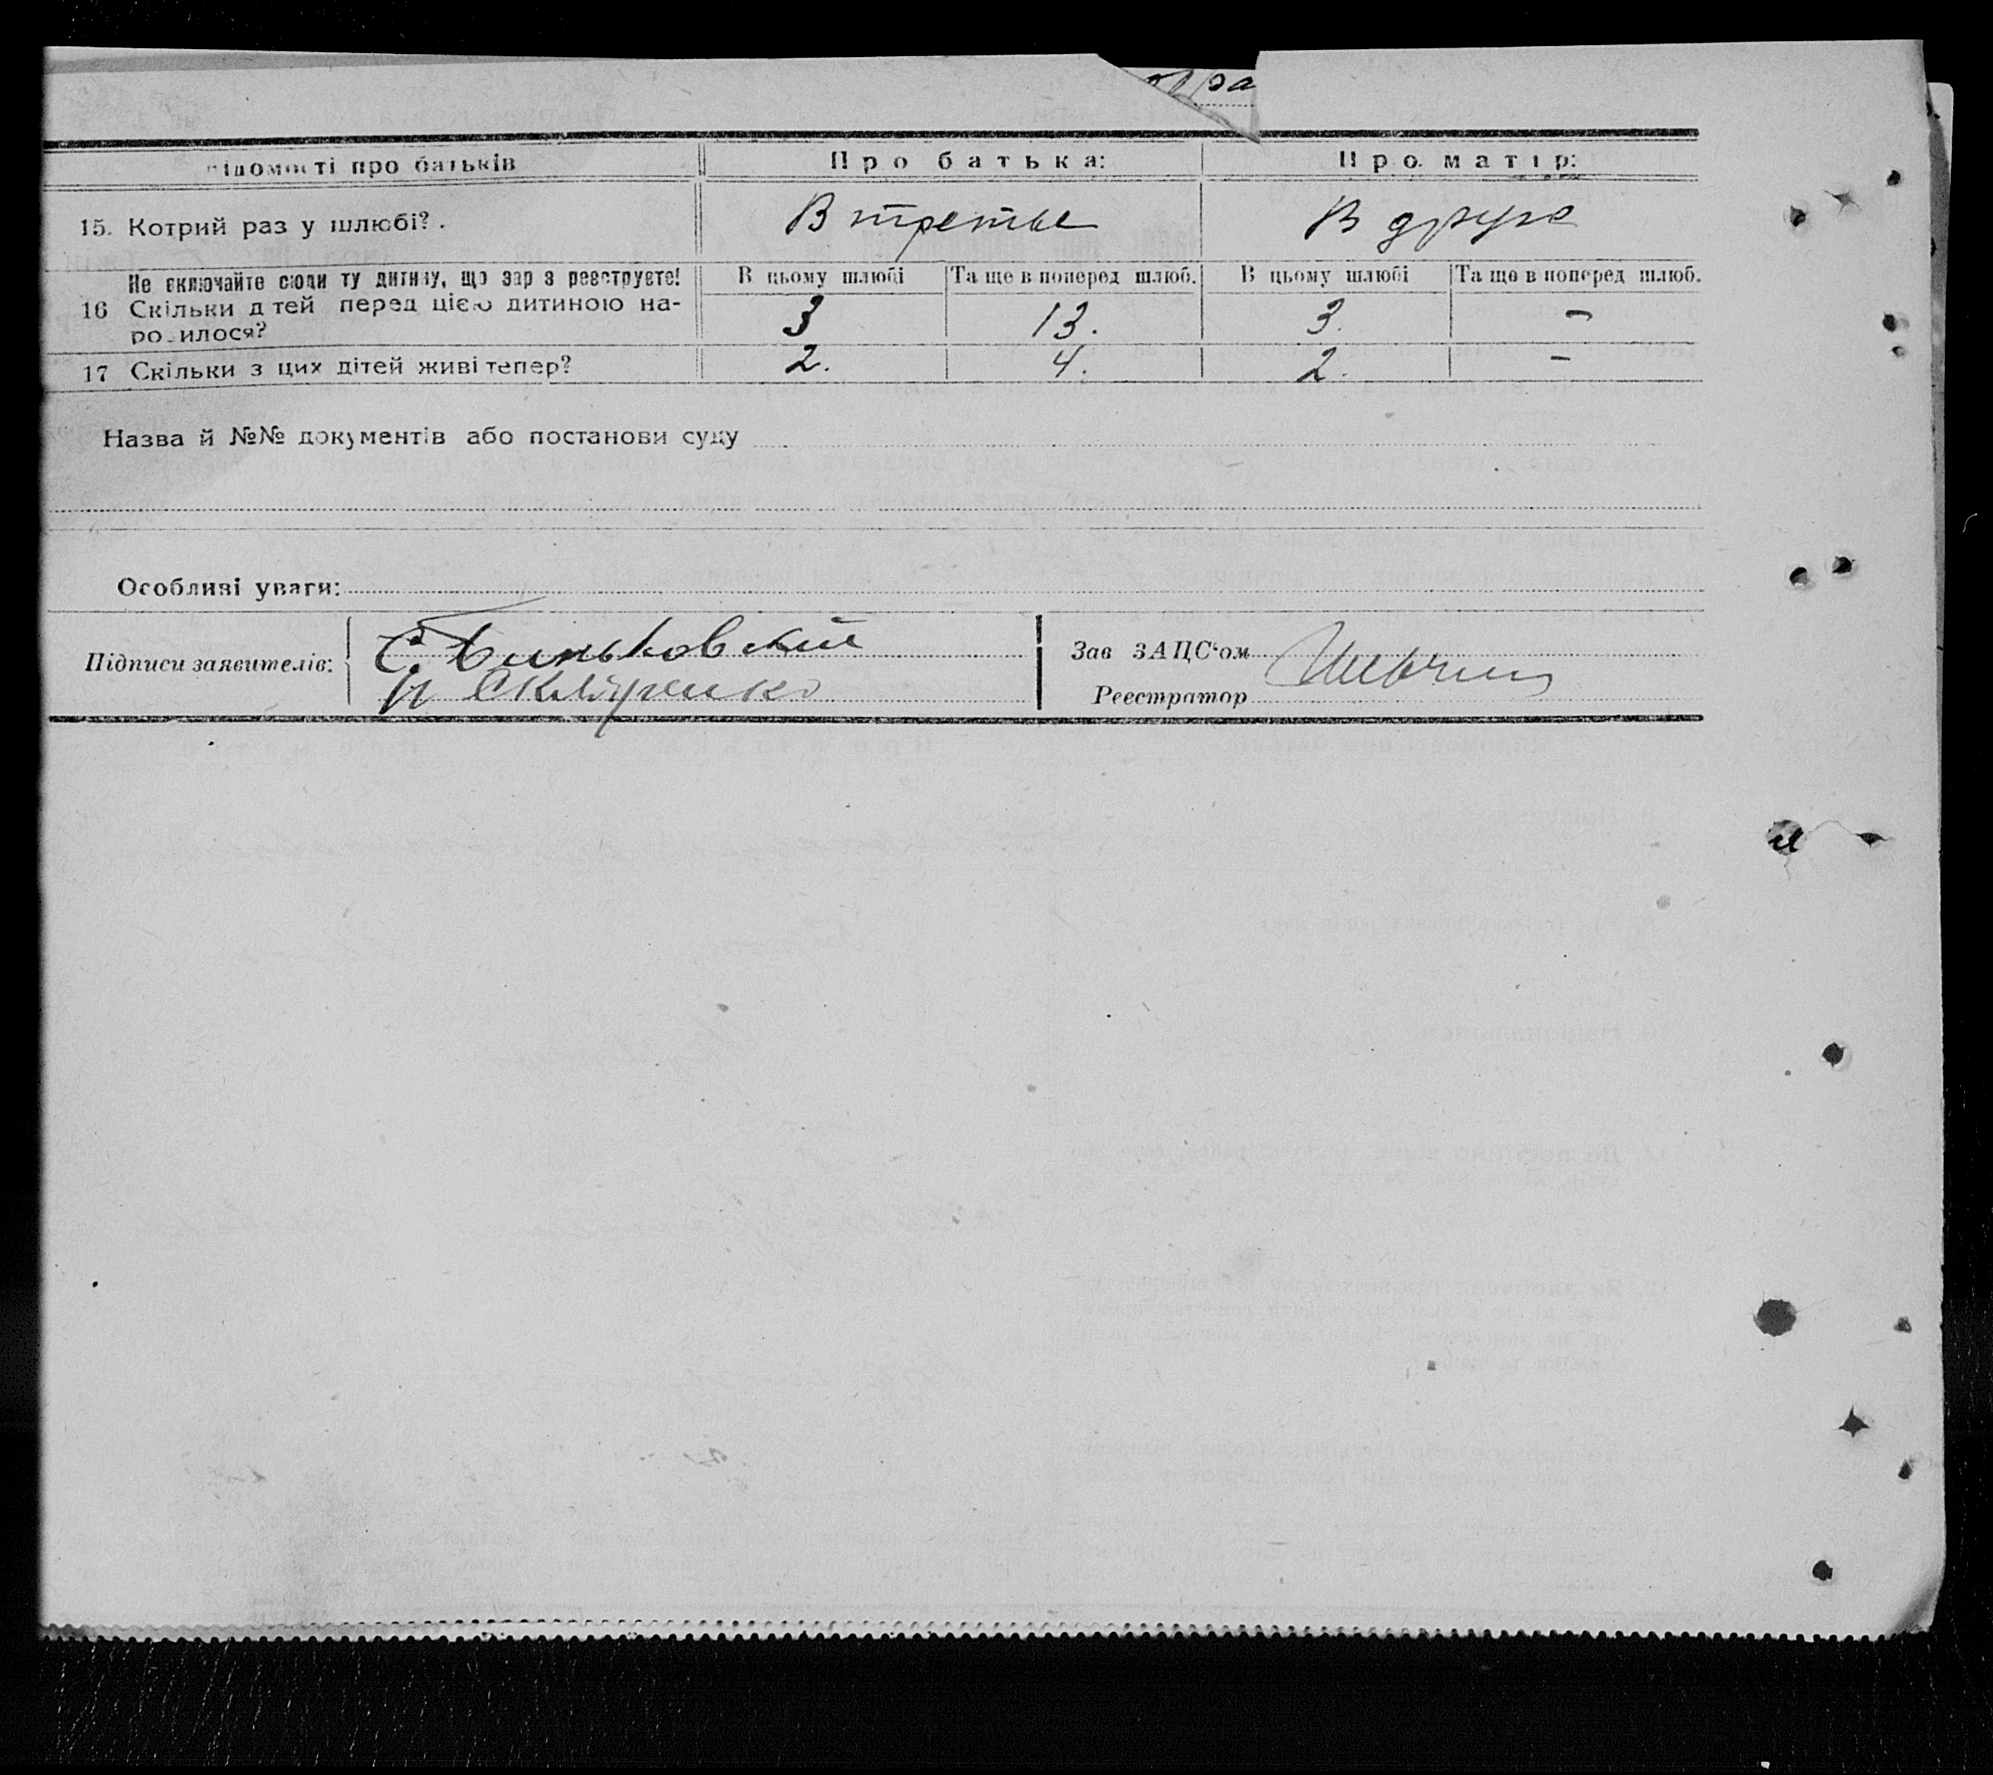 ра
відомості про батьків Про батька: Про матір:
15. Котрий раз у шлюбі? . В третье В друге
Не включайте сюди ту дитину, що зар з реєструєте! В цьому шлюбі Та ще в поперед шлюб. В цьому шлюбі Та ще в поперед шлюб.
16 Скільки д тей перед цією дитиною на-
ро илося? 3 13. 3. -
17 Скільки з цих дітей живі тепер? 2. 4. 2. -
Назва й №№ документів або постанови суду
Особливі уваги:
Підписи заявителів: С. Биньковский Зав ЗАЦС‘ом
Скляренко Реєстратор